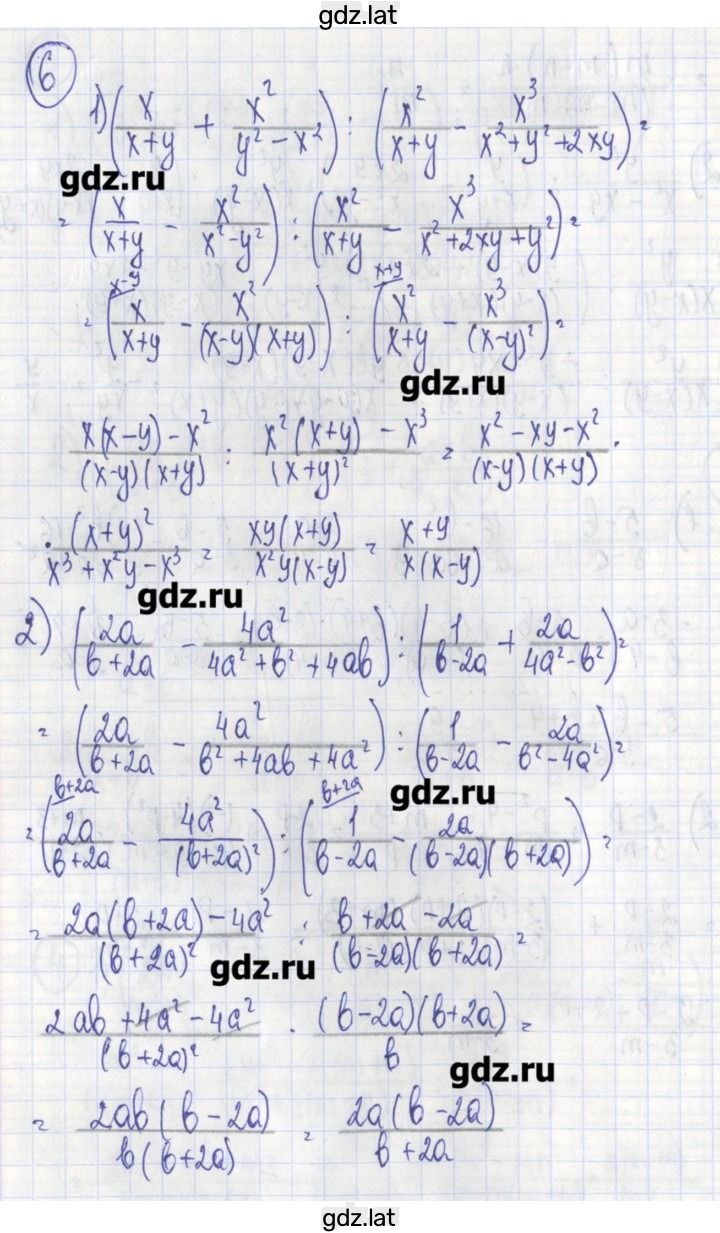 gdz.lat
6
1) (x/(x+y) + x²/(y² − x²)) : (x²/(x+y) − x³/(x²+y²+2xy)) =
gdz.ru
= (x/(x+y) − x²/(x²−y²)) : (x²/(x+y) − x³/(x²+2xy+y²)) =
= (x/(x+y) [x−y] − x²/((x−y)(x+y))) : (x²/(x+y) [x+y] − x³/(x−y)²) =
gdz.ru
(x(x−y) − x²)/((x−y)(x+y)) : (x²(x+y) − x³)/(x+y)² = (x² − xy − x²)/((x−y)(x+y)) ·
· (x+y)²/(x³ + x²y − x³) = xy(x+y)/(x²y(x−y)) = (x+y)/(x(x−y))
gdz.ru
2) (2a/(b+2a) − 4a²/(4a²+b²+4ab)) : (1/(b−2a) + 2a/(4a²−b²)) =
= (2a/(b+2a) − 4a²/(b²+4ab+4a²)) : (1/(b−2a) − 2a/(b²−4a²)) =
gdz.ru
= (2a/(b+2a) [b+2a] − 4a²/(b+2a)²) : (1/(b−2a) [b+2a] − 2a/((b−2a)(b+2a))) =
= (2a(b+2a) − 4a²)/(b+2a)² : (b+2a−2a)/((b−2a)(b+2a)) =
gdz.ru
(2ab + 4a² − 4a²)/(b+2a)² · ((b−2a)(b+2a))/b =
gdz.ru
= 2ab(b−2a)/(b(b+2a)) = 2a(b−2a)/(b+2a)
gdz.lat